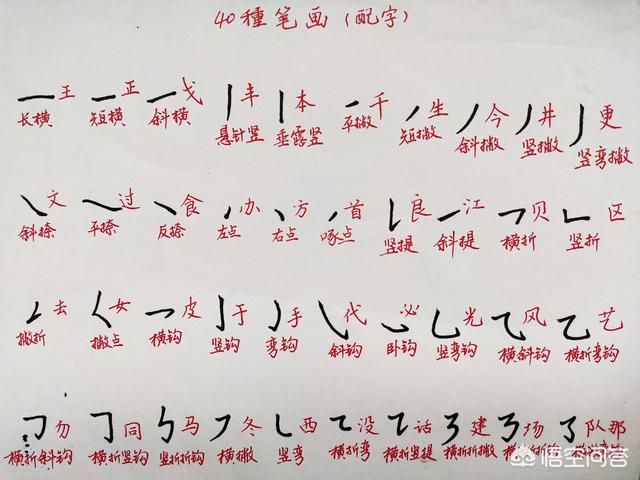 40種笔画(配字)
王 正 戈 丰 本 千 生 今 井 更
长横 短横 斜横 悬针竖 垂露竖 平撇 短撇 斜撇 竖撇 竖弯撇
文 过 食 办 方 首 良 江 贝 区
斜捺 平捺 反捺 左点 右点 啄点 竖提 斜提 横折 竖折
去 女 皮 于 手 代 必 光 风 艺
撇折 撇点 横钩 竖钩 弯钩 斜钩 卧钩 竖弯钩 横斜钩 横折弯钩
勿 同 马 冬 西 没 话 建 场 队那
横折斜钩 横折竖钩 竖折折钩 横撇 竖弯 横折弯 横折竖提 横折折撇
悟空问答